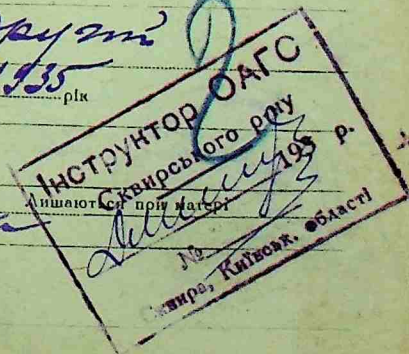 другий
1935 рік
Інструктор ОАГС
Сквирського р-ну
193 р.
Лишаються при матері
№
Сквира, Київськ. області